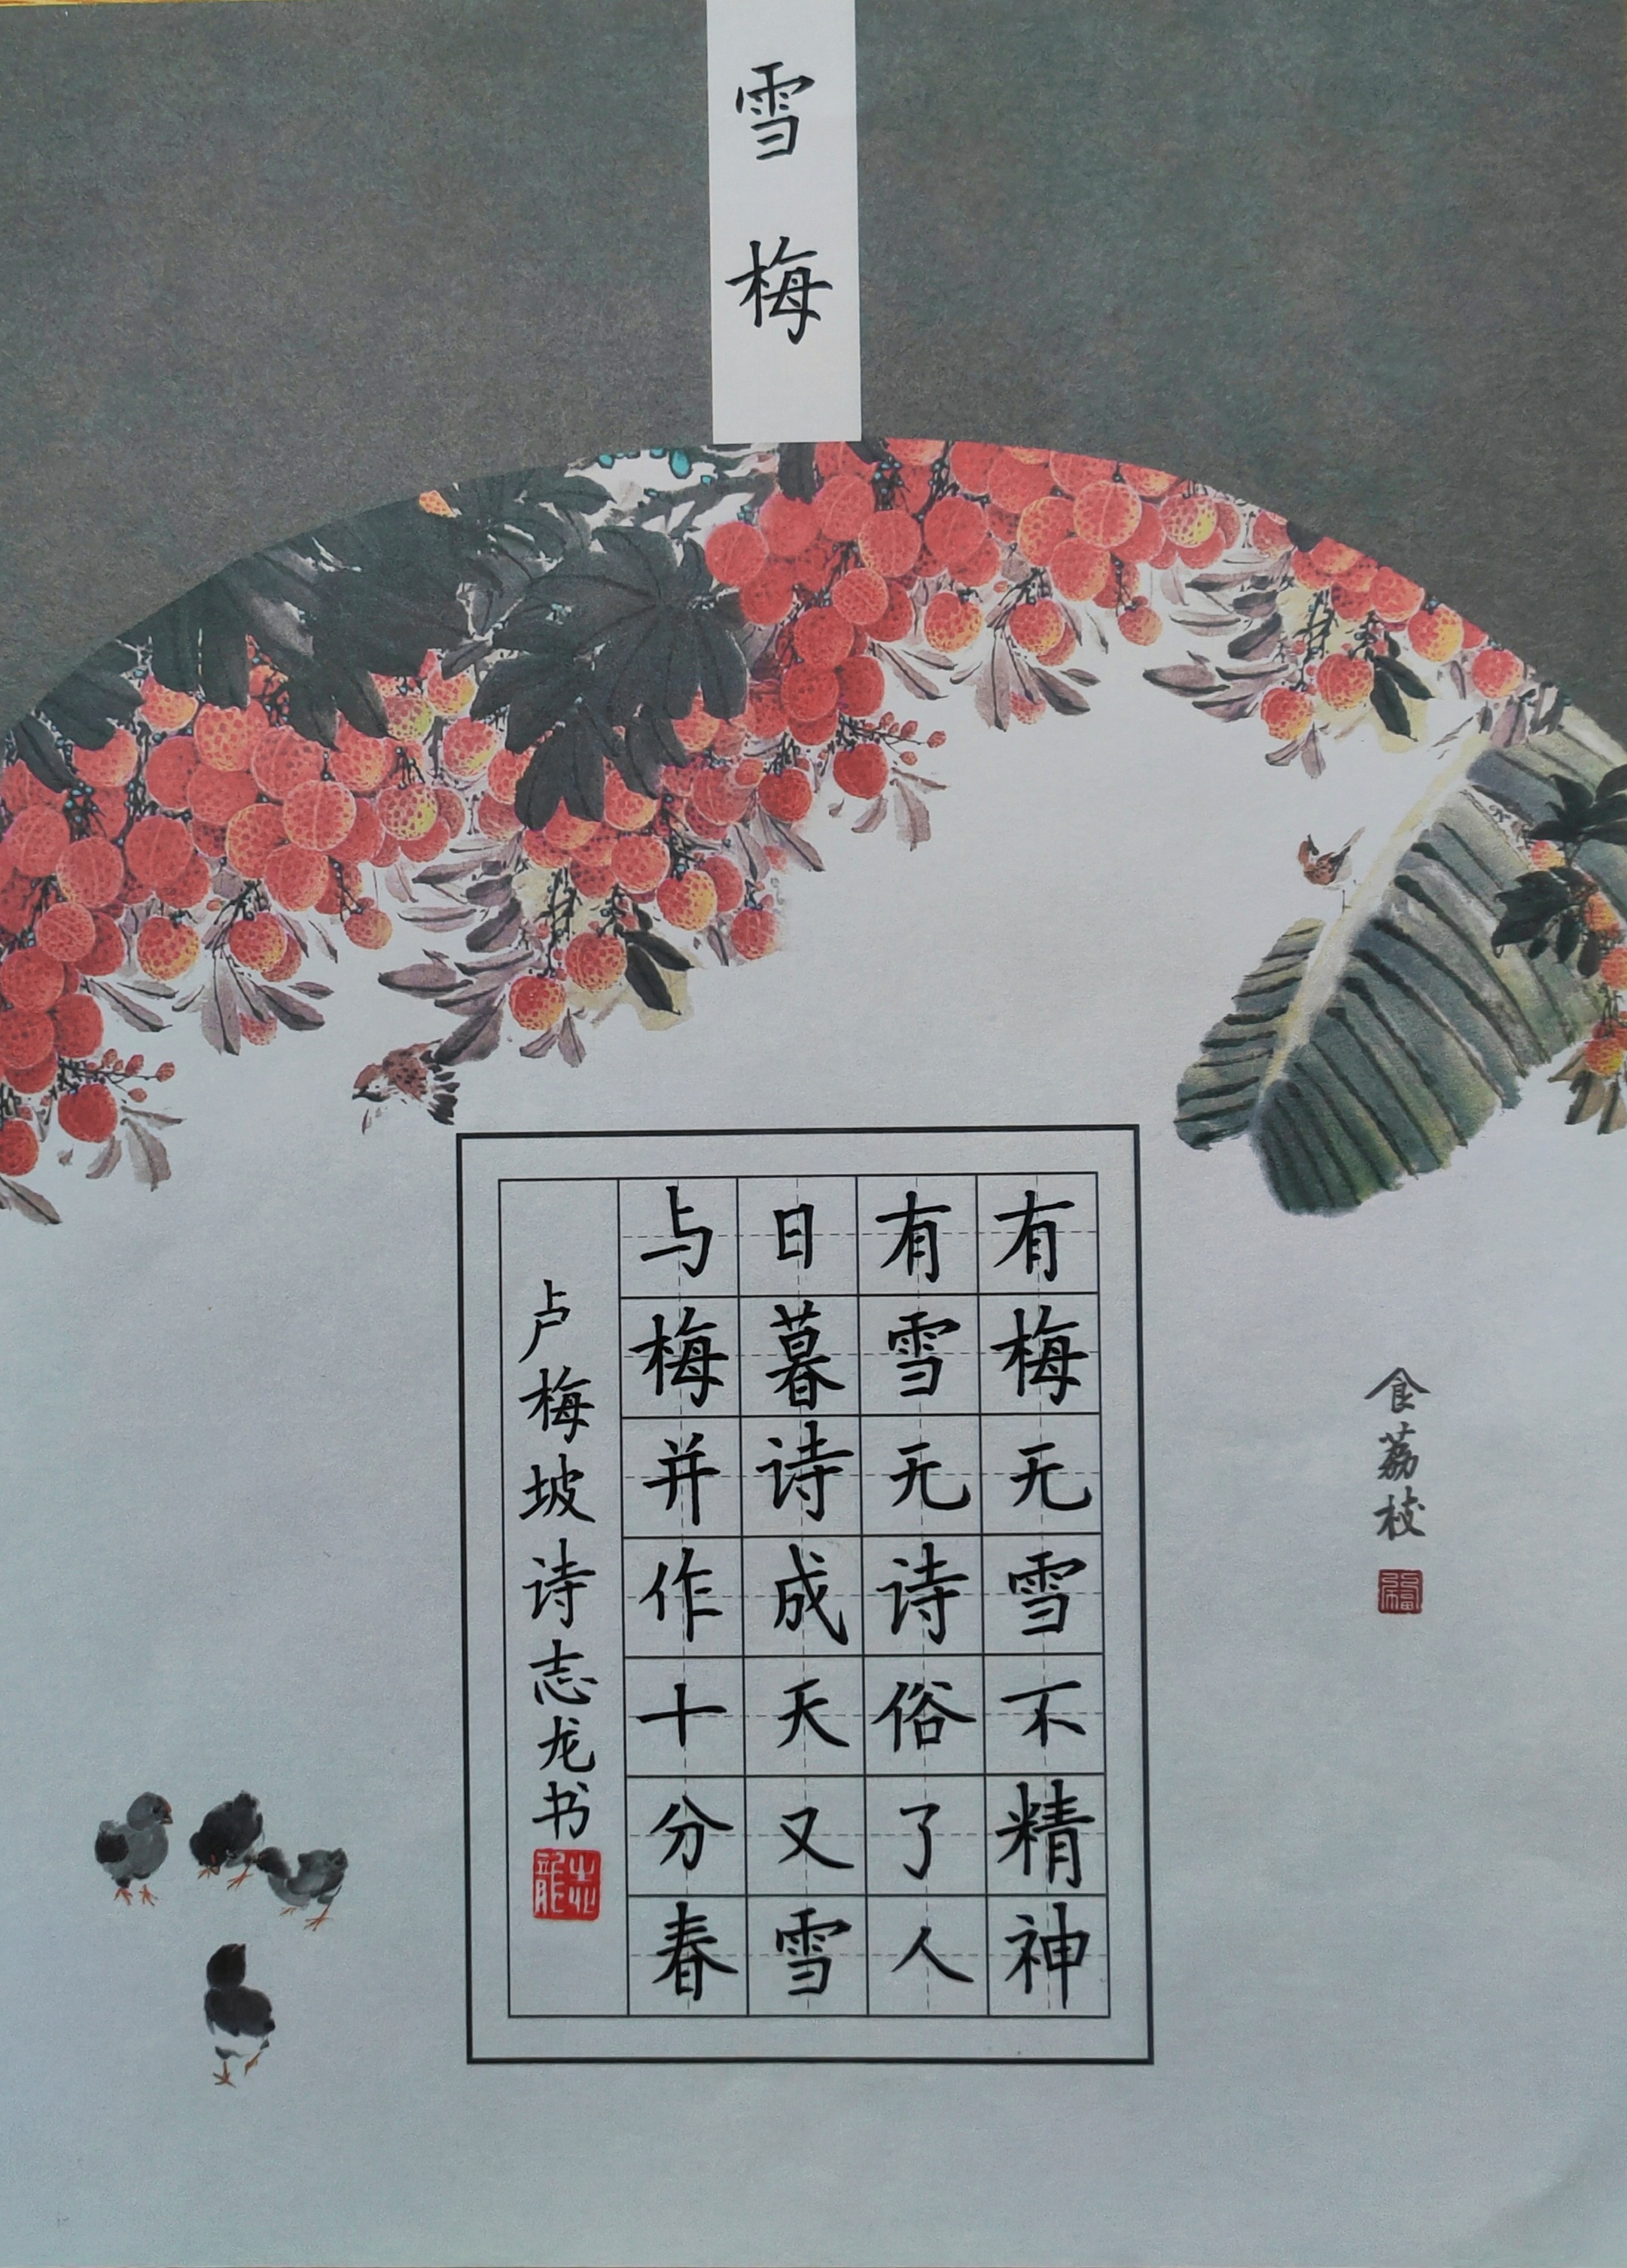 雪梅
有梅无雪不精神
有雪无诗俗了人
日暮诗成天又雪
与梅并作十分春
卢梅坡诗志龙书
志龍
食荔枝
福